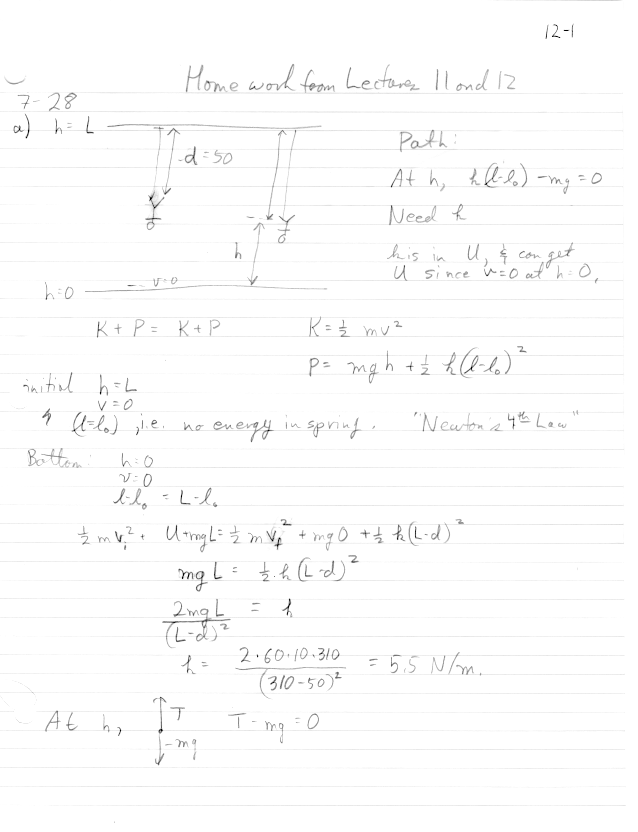 12-1
Homework from Lectures 11 and 12
7-28
a) h = L
d = 50
Path:
At h, k(l-l₀) - mg = 0
Need k
k is in U, & can get
U since v=0 at h=0.
h
v=0
h=0
K + P = K + P
K = ½ mv²
P = mgh + ½ k(l-l₀)²
initial h = L
v = 0
& (l=l₀), i.e. no energy in spring. "Newton's 4th Law"
Bottom: h=0
v=0
l-l₀ = L-l₀
½ m vᵢ² + U+mgL = ½ m v_f² + mg0 + ½ k(L-d)²
mgL = ½ · k (L-d)²
2mgL / (L-d)² = k
k = 2·60·10·310 / (310-50)² = 5.5 N/m.
At h, T T - mg = 0
-mg